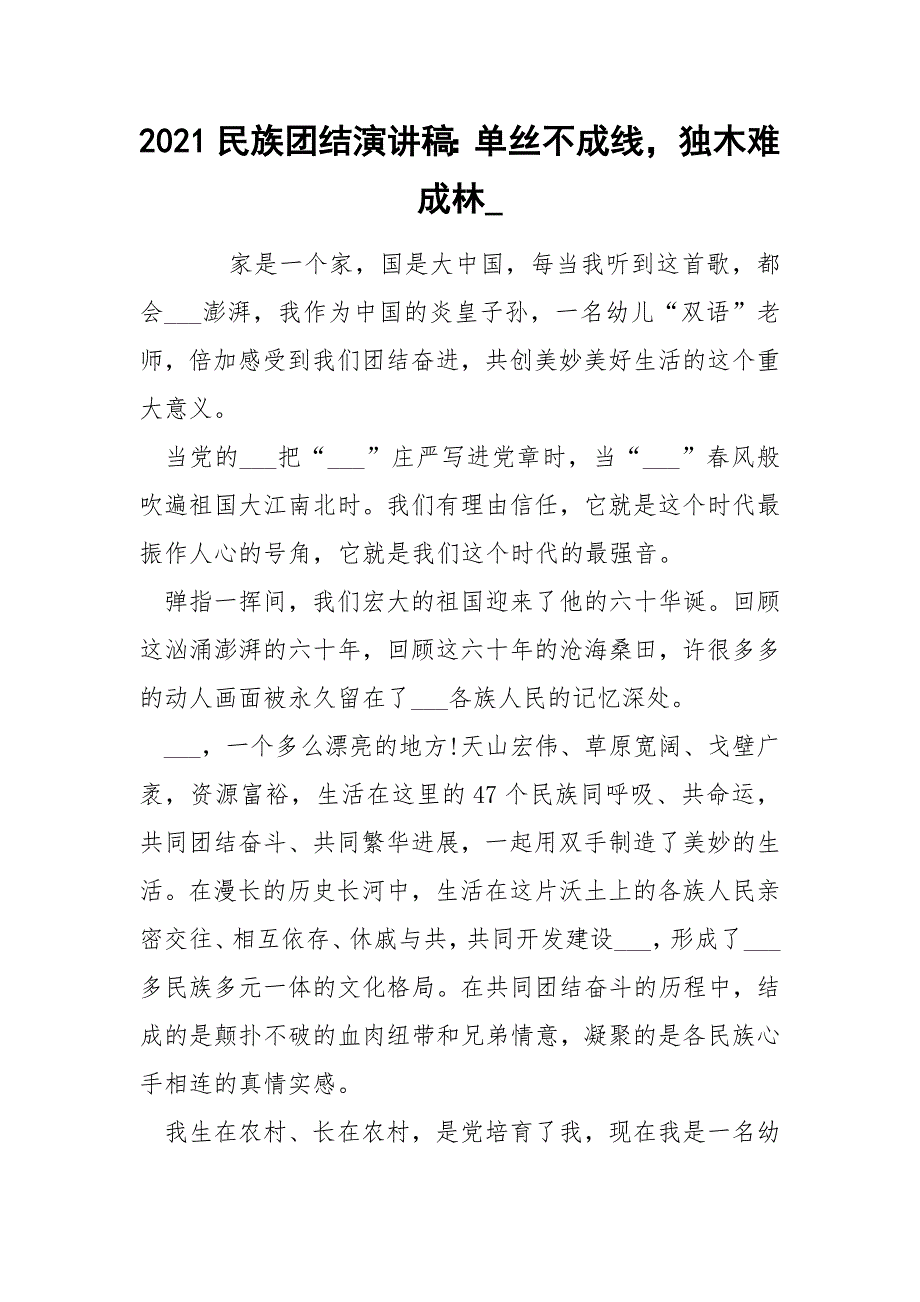 2021民族团结演讲稿：单丝不成线，独木难
成林_
家是一个家，国是大中国，每当我听到这首歌，都
会___澎湃，我作为中国的炎皇子孙，一名幼儿“双语”老
师，倍加感受到我们团结奋进，共创美妙美好生活的这个重
大意义。
当党的___把“___”庄严写进党章时，当“___”春风般
吹遍祖国大江南北时。我们有理由信任，它就是这个时代最
振作人心的号角，它就是我们这个时代的最强音。
弹指一挥间，我们宏大的祖国迎来了他的六十华诞。回顾
这汹涌澎湃的六十年，回顾这六十年的沧海桑田，许很多多
的动人画面被永久留在了___各族人民的记忆深处。
___，一个多么漂亮的地方!天山宏伟、草原宽阔、戈壁广
袤，资源富裕，生活在这里的47个民族同呼吸、共命运，
共同团结奋斗、共同繁华进展，一起用双手制造了美妙的生
活。在漫长的历史长河中，生活在这片沃土上的各族人民亲
密交往、相互依存、休戚与共，共同开发建设___，形成了___
多民族多元一体的文化格局。在共同团结奋斗的历程中，结
成的是颠扑不破的血肉纽带和兄弟情意，凝聚的是各民族心
手相连的真情实感。
我生在农村、长在农村，是党培育了我，现在我是一名幼